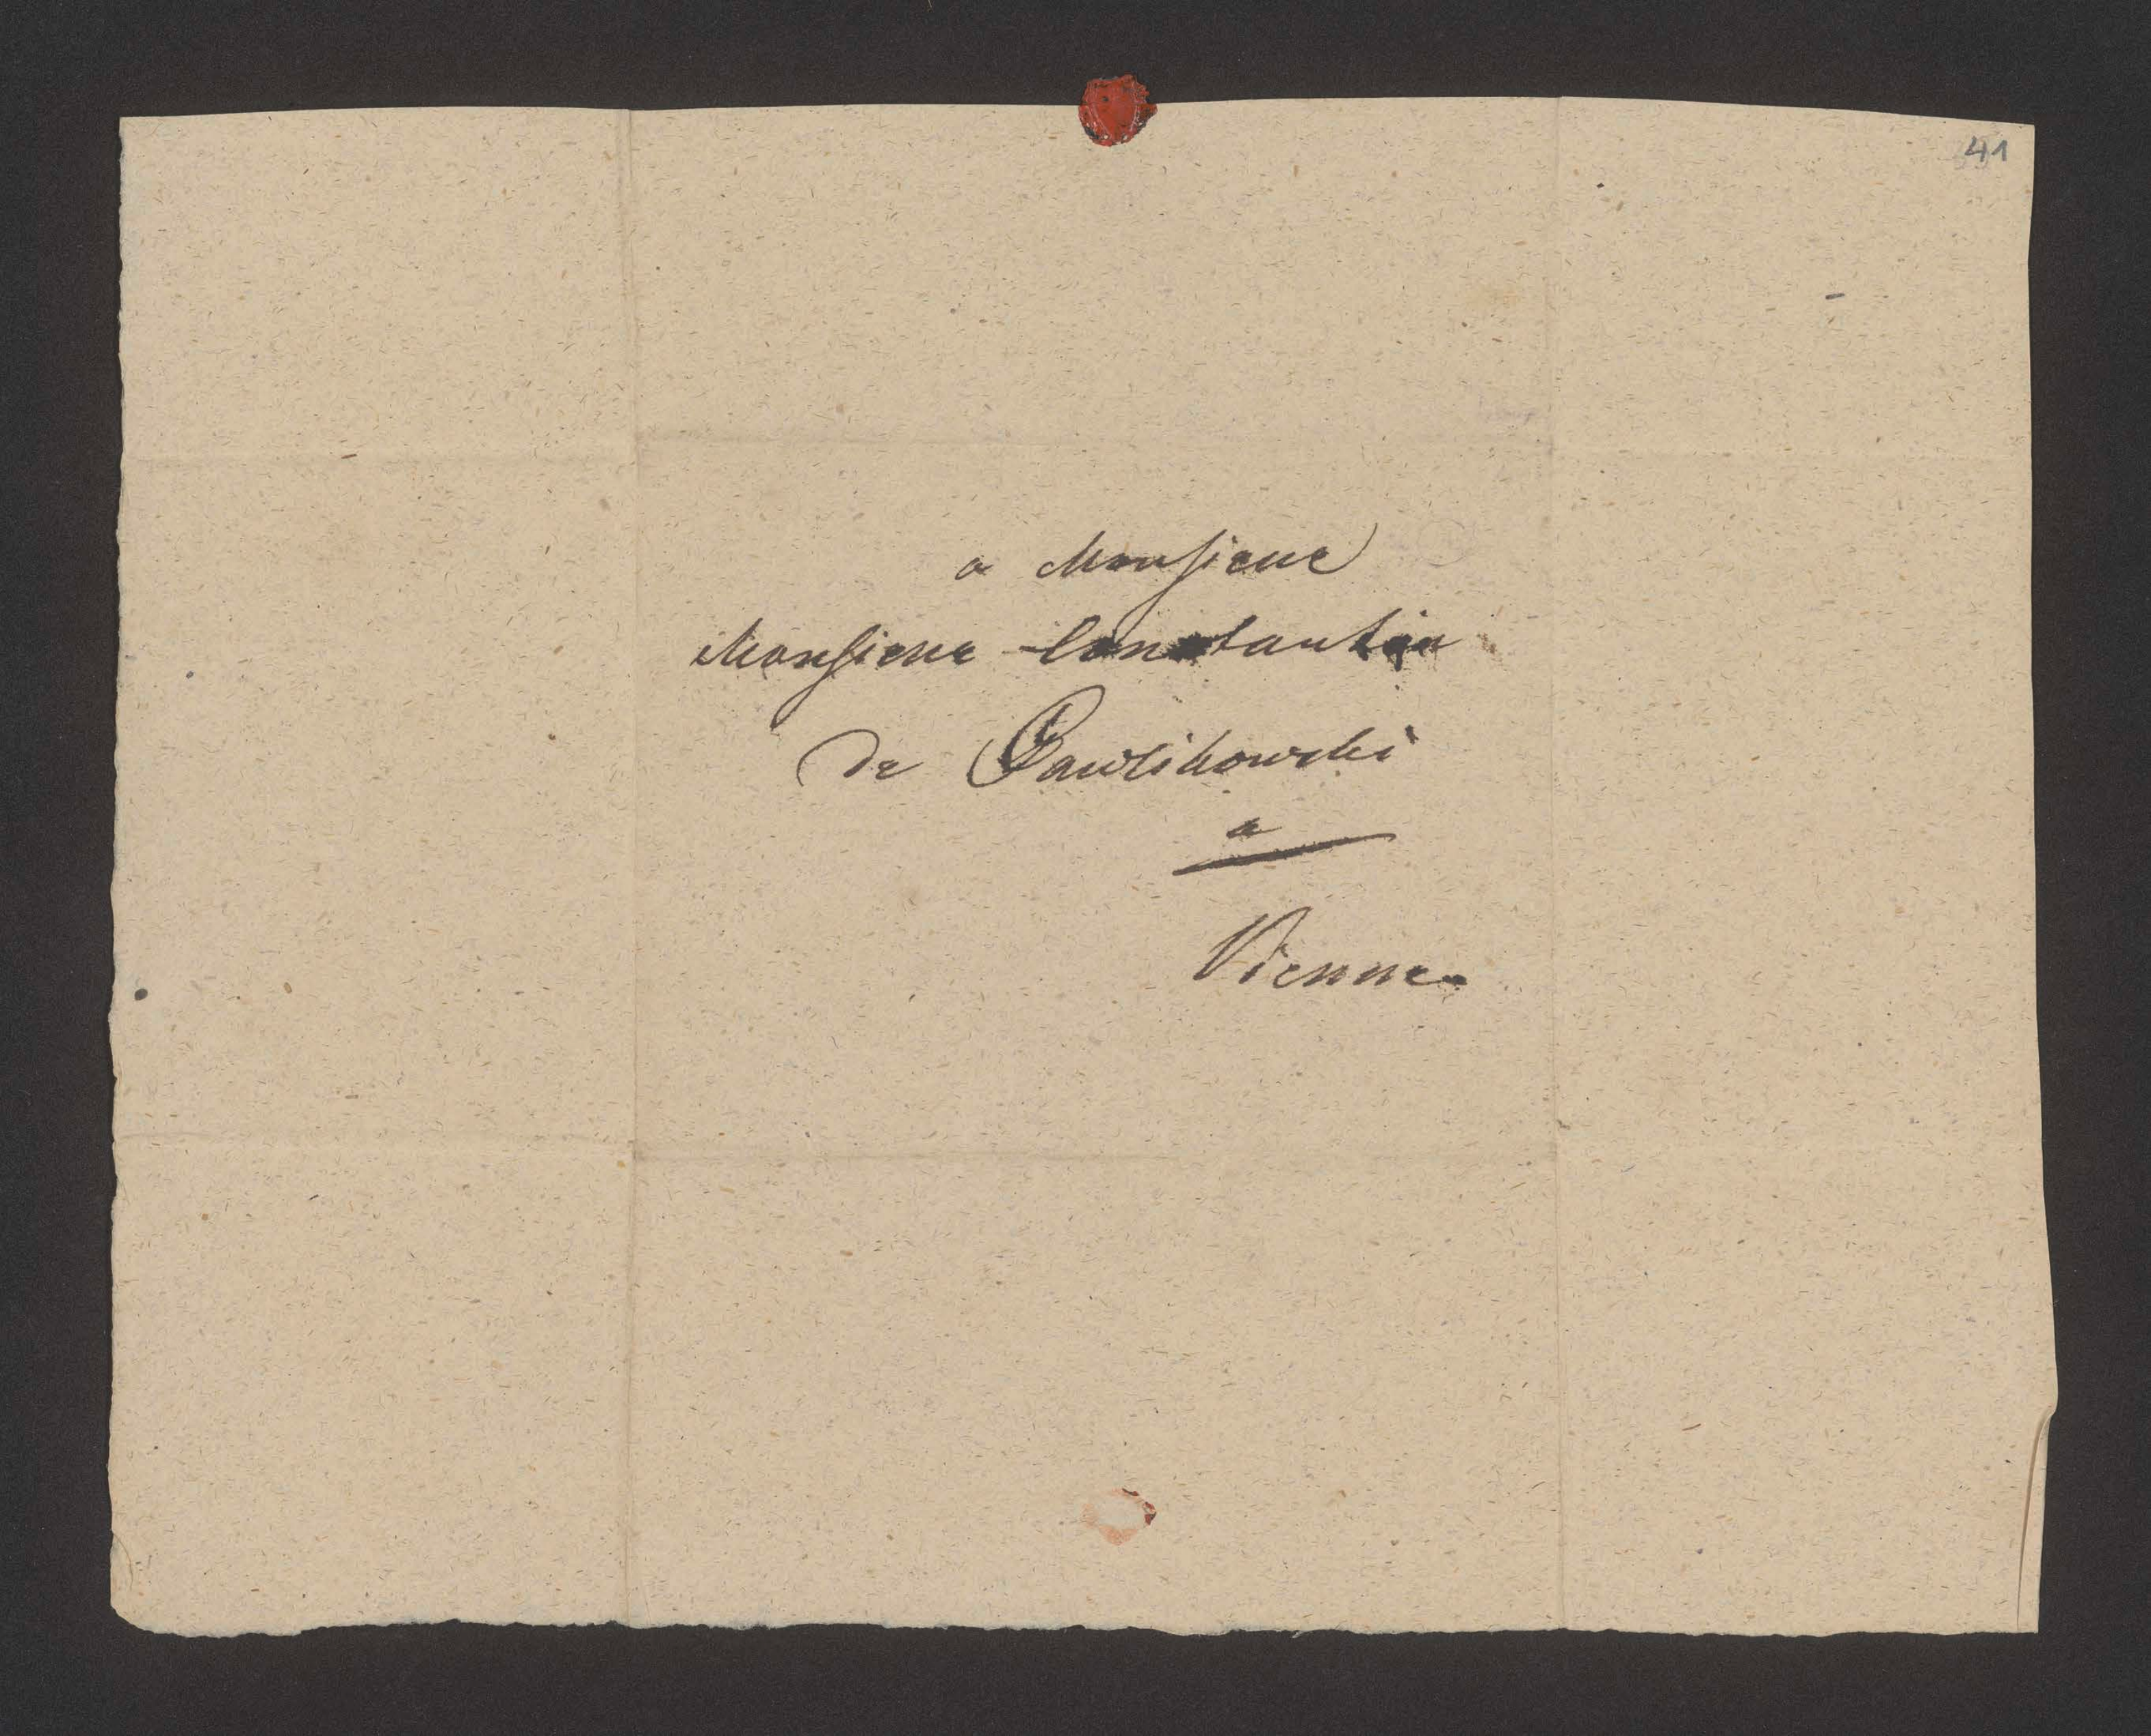 41
a Monsieur
Monsieur Constantin
de Pawlikowski
a
Vienne.